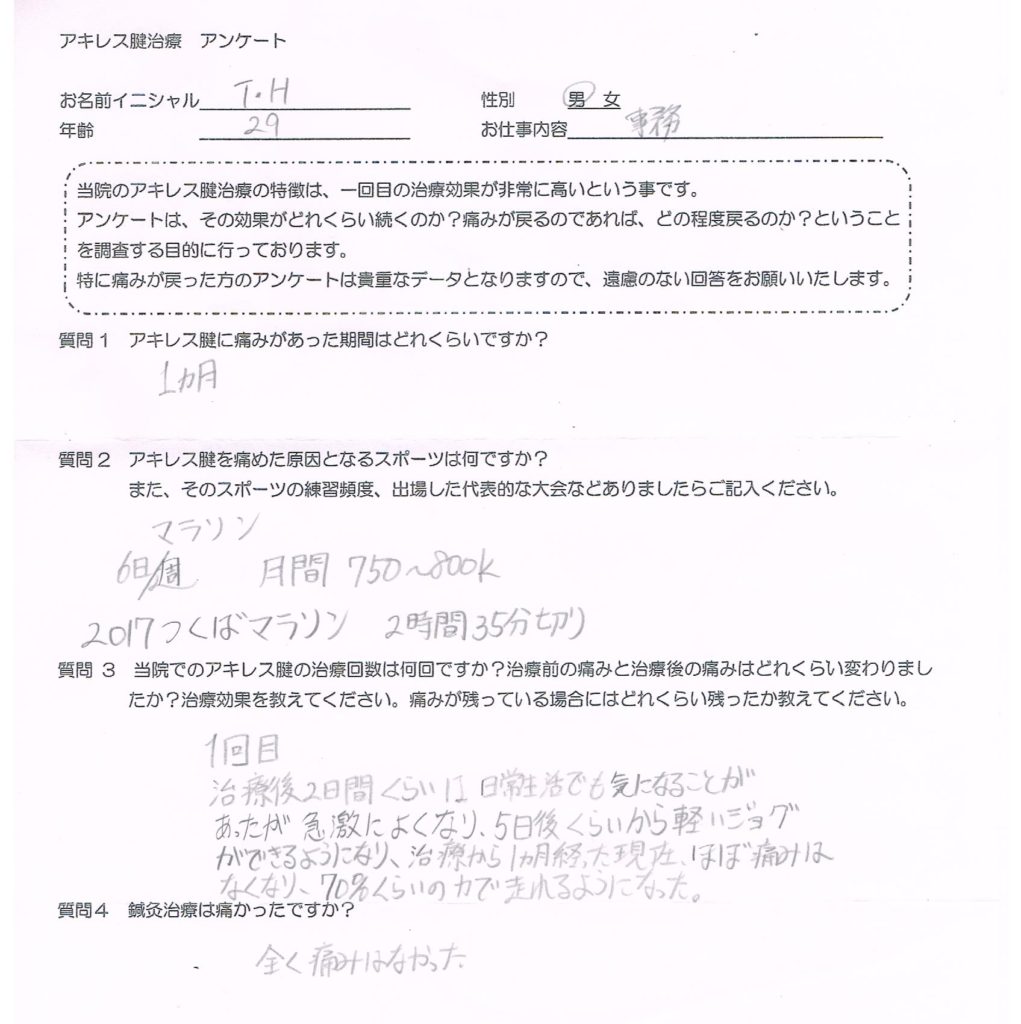 アキレス腱治療　アンケート
お名前イニシャル T・H　性別　男　女
年齢 29　お仕事内容 事務
当院のアキレス腱治療の特徴は、一回目の治療効果が非常に高いという事です。
アンケートは、その効果がどれくらい続くのか？痛みが戻るのであれば、どの程度戻るのか？ということ
を調査する目的に行っております。
特に痛みが戻った方のアンケートは貴重なデータとなりますので、遠慮のない回答をお願いいたします。
質問１　アキレス腱に痛みがあった期間はどれくらいですか？
1ヵ月
質問２　アキレス腱を痛めた原因となるスポーツは何ですか？
また、そのスポーツの練習頻度、出場した代表的な大会などありましたらご記入ください。
マラソン
6日/週　月間 750〜800k
2017つくばマラソン　2時間35分切り
質問 ３　当院でのアキレス腱の治療回数は何回ですか？治療前の痛みと治療後の痛みはどれくらい変わりまし
たか？治療効果を教えてください。痛みが残っている場合にはどれくらい残ったか教えてください。
1回目
治療後2日間くらいは 日常生活でも気になることが
あったが 急激によくなり、5日後くらいから軽いジョグ
ができるようになり、治療から1ヵ月経った現在、ほぼ痛みは
なくなり、70%くらいの力で走れるようになった。
質問４　鍼灸治療は痛かったですか？
全く痛みはなかった